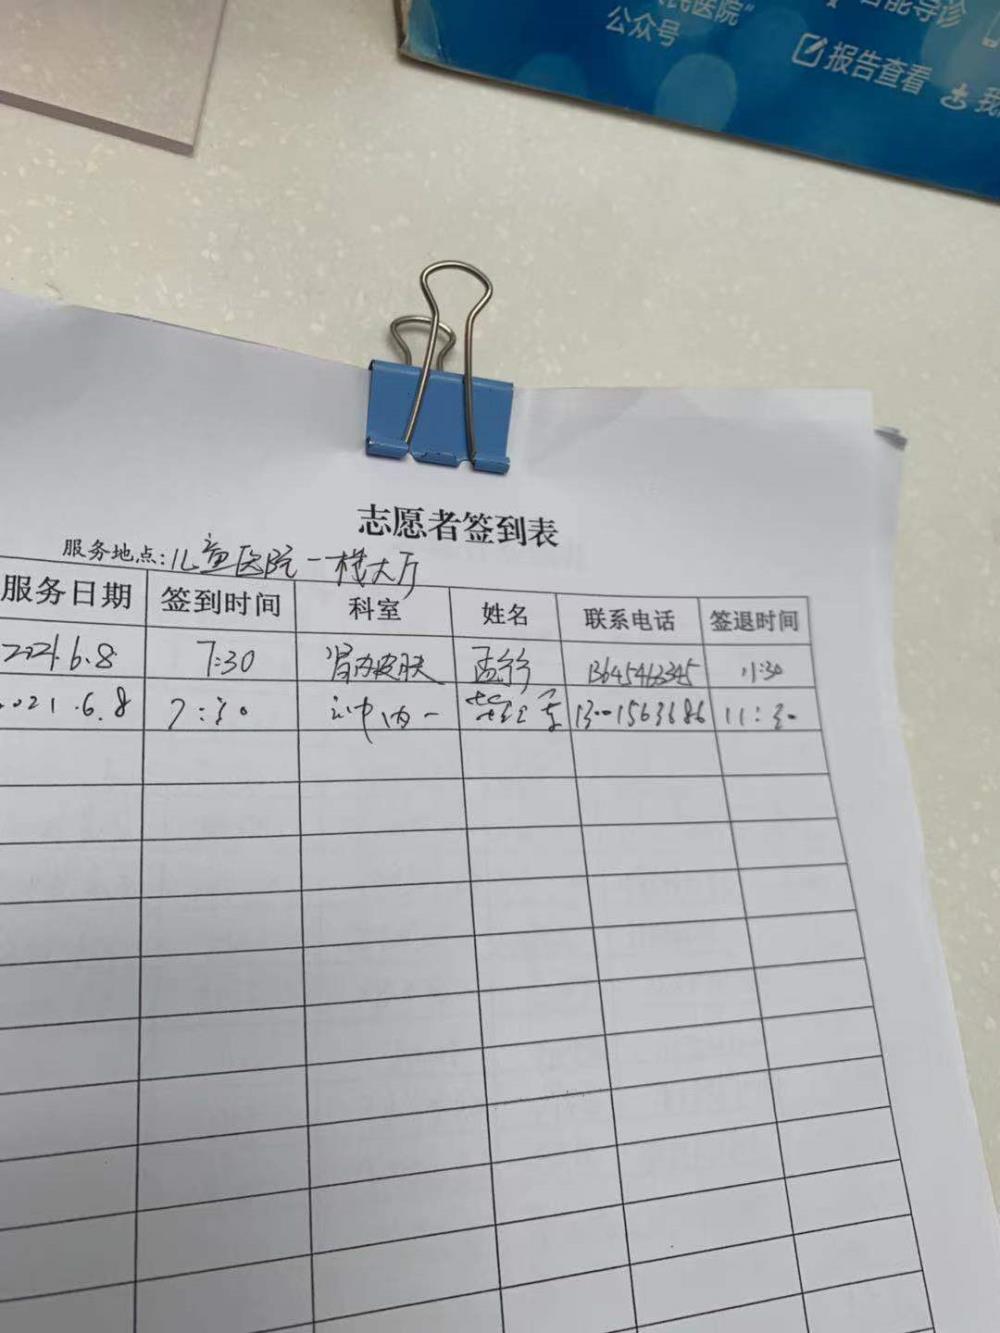 民医院"
智能导诊
公众号
报告查看
我
志愿者签到表
服务地点:儿童医院一楼大厅
服务日期 签到时间 科室 姓名 联系电话 签退时间
2021.6.8 7:30 肾内皮肤 13645463345 11:30
2021.6.8 7:30 神内一 13001563686 11:30